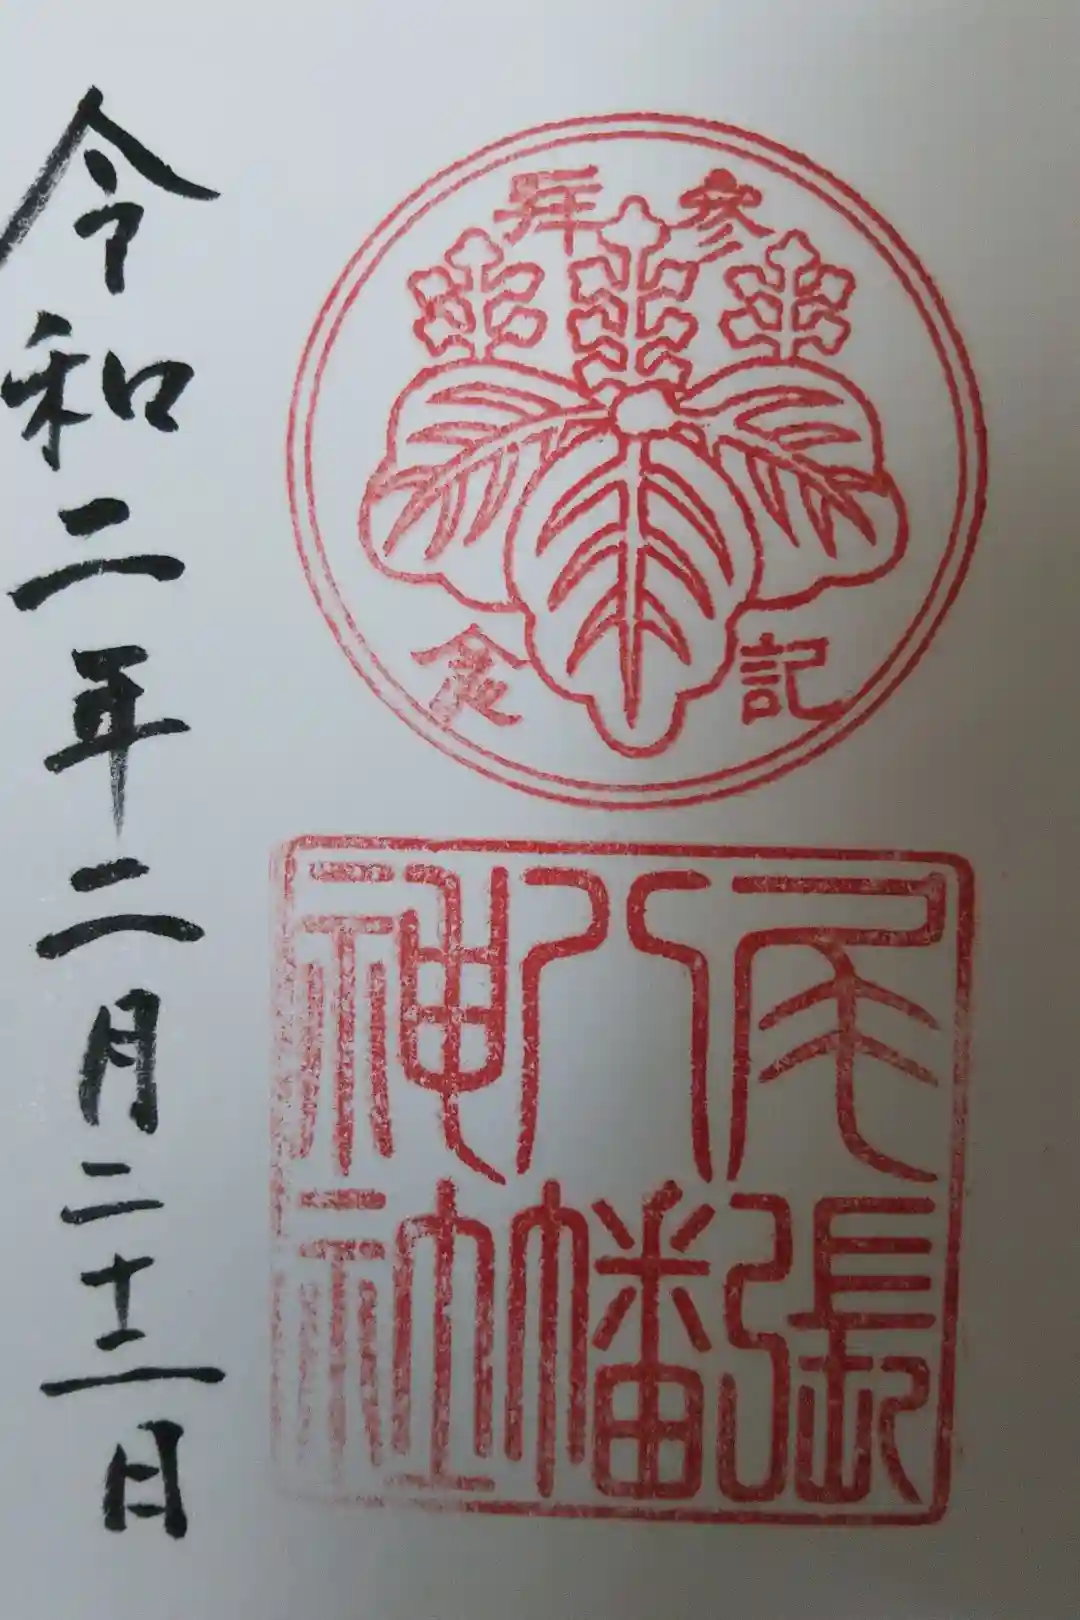 参拝
記念
尾張
八幡
神社
令和二年二月二十二日